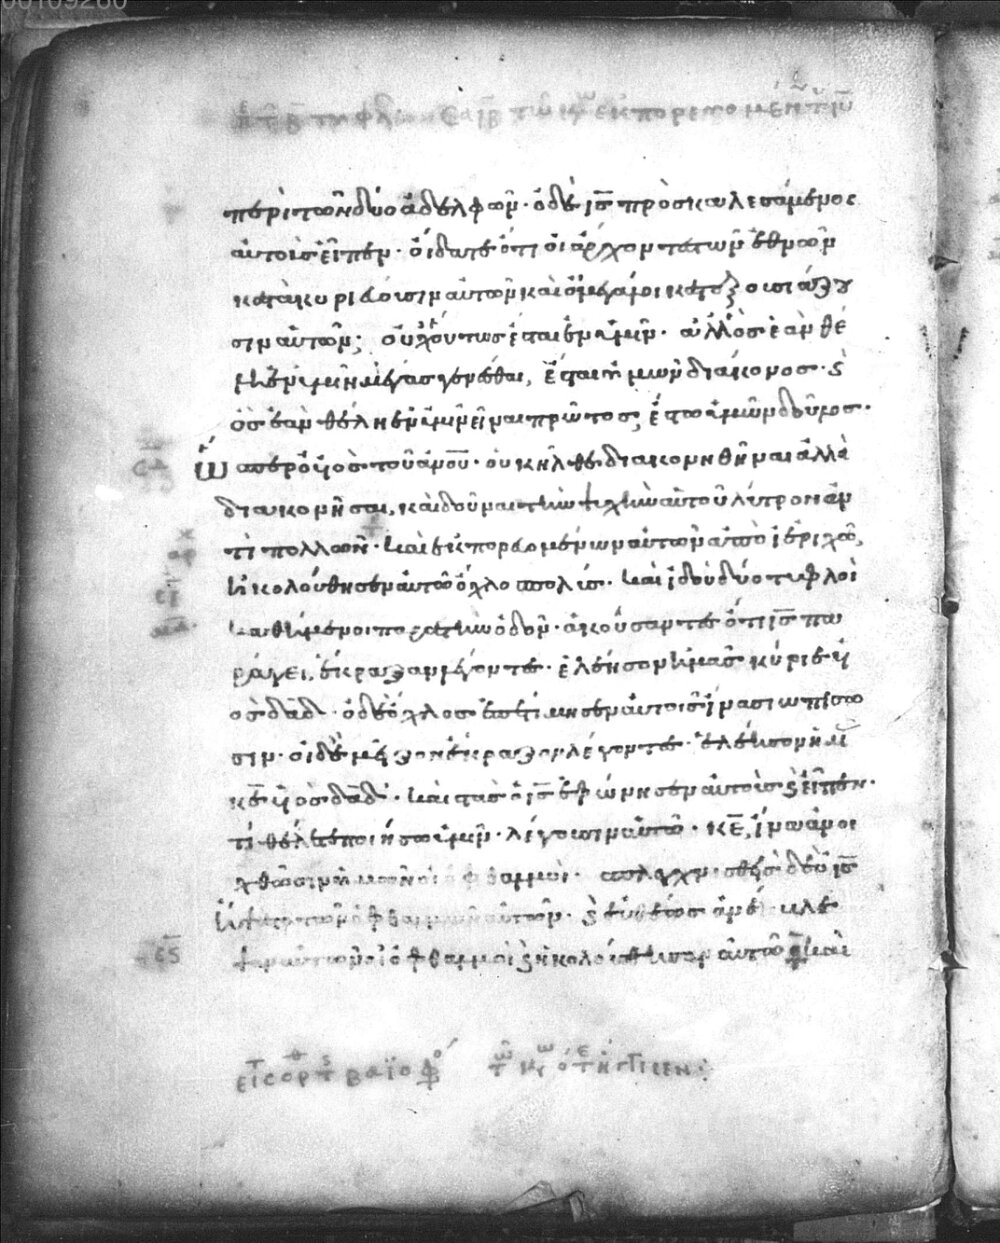 περὶ τῶν δύο ἀδελφῶν· ὁ δὲ ις̅ προσκαλεσάμενος
αὐτοὺς εἶπεν· οἴδατε ὅτι οἱ ἄρχοντες τῶν ἐθνῶν
κατακυριεύουσιν αὐτῶν καὶ οἱ μεγάλοι κατεξουσιάζου
σιν αὐτῶν· οὐχ οὕτως ἔσται ἐν ὑμῖν· ἀλλ' ὃς ἐὰν θέ
λη ἐν ὑμῖν μέγας γενέσθαι, ἔσται ὑμῶν διάκονος· ϗ
ὃς ἐὰν θέλη ἐν ὑμῖν εἶναι πρῶτος, ἔστω ὑμῶν δοῦλος·
ὥσπερ ὁ υἱὸς τοῦ α̅νου̅· οὐκ ἦλθε διακονηθῆναι ἀλλὰ
διακονῆσαι, καὶ δοῦναι τὴν ψυχὴν αὐτοῦ λύτρον ἀν
τὶ πολλῶν· καὶ ἐκπορευομένων αὐτῶν ἀπὸ ἱεριχῶ,
ἠκολούθησεν αὐτῶ ὄχλος πολύς· καὶ ἰδοὺ δύο τυφλοὶ
καθήμενοι παρὰ τὴν ὁδὸν· ἀκούσαντες ὅτι ις̅ πα
ράγει, ἔκραξαν λέγοντες· ἐλέησον ἡμᾶς κύριε υἱ
ὸς δα̅δ· ὁ δὲ ὄχλος ἐπετίμησεν αὐτοῖς ἵνα σιωπήσω
σιν· οἱ δὲ μεῖζον ἔκραζον λέγοντες· ἐλέησον ἡμᾶς
κε̅ υἱὸς δα̅δ· καὶ στὰς ὁ ις̅ ἐφώνησεν αὐτοὺς ϗ εἶπεν·
τί θέλετε ποιήσω ὑμῖν· λέγουσιν αὐτῶ· κε̅, ἵνα ἀνοι
χθῶσιν ἡμῶν οἱ ὀφθαλμοί· σπλαγχνισθεὶς δὲ ὁ ις̅
ἥψατο τῶν ὀφθαλμῶν αὐτῶν· ϗ εὐθέως ἀνέβλε
ψαν αὐτῶν οἱ ὀφθαλμοὶ ϗ ἠκολούθησαν αὐτῶ καὶ